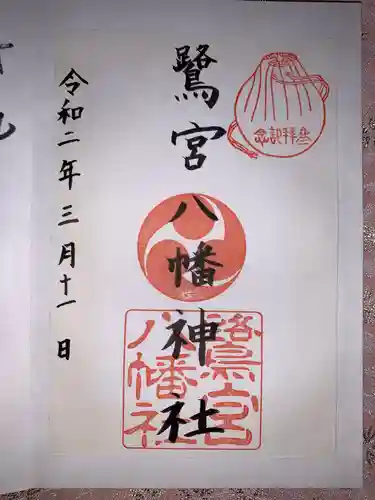 参拝記念
鷺宮八幡神社
鷺宮
八幡神社
令和二年三月十一日